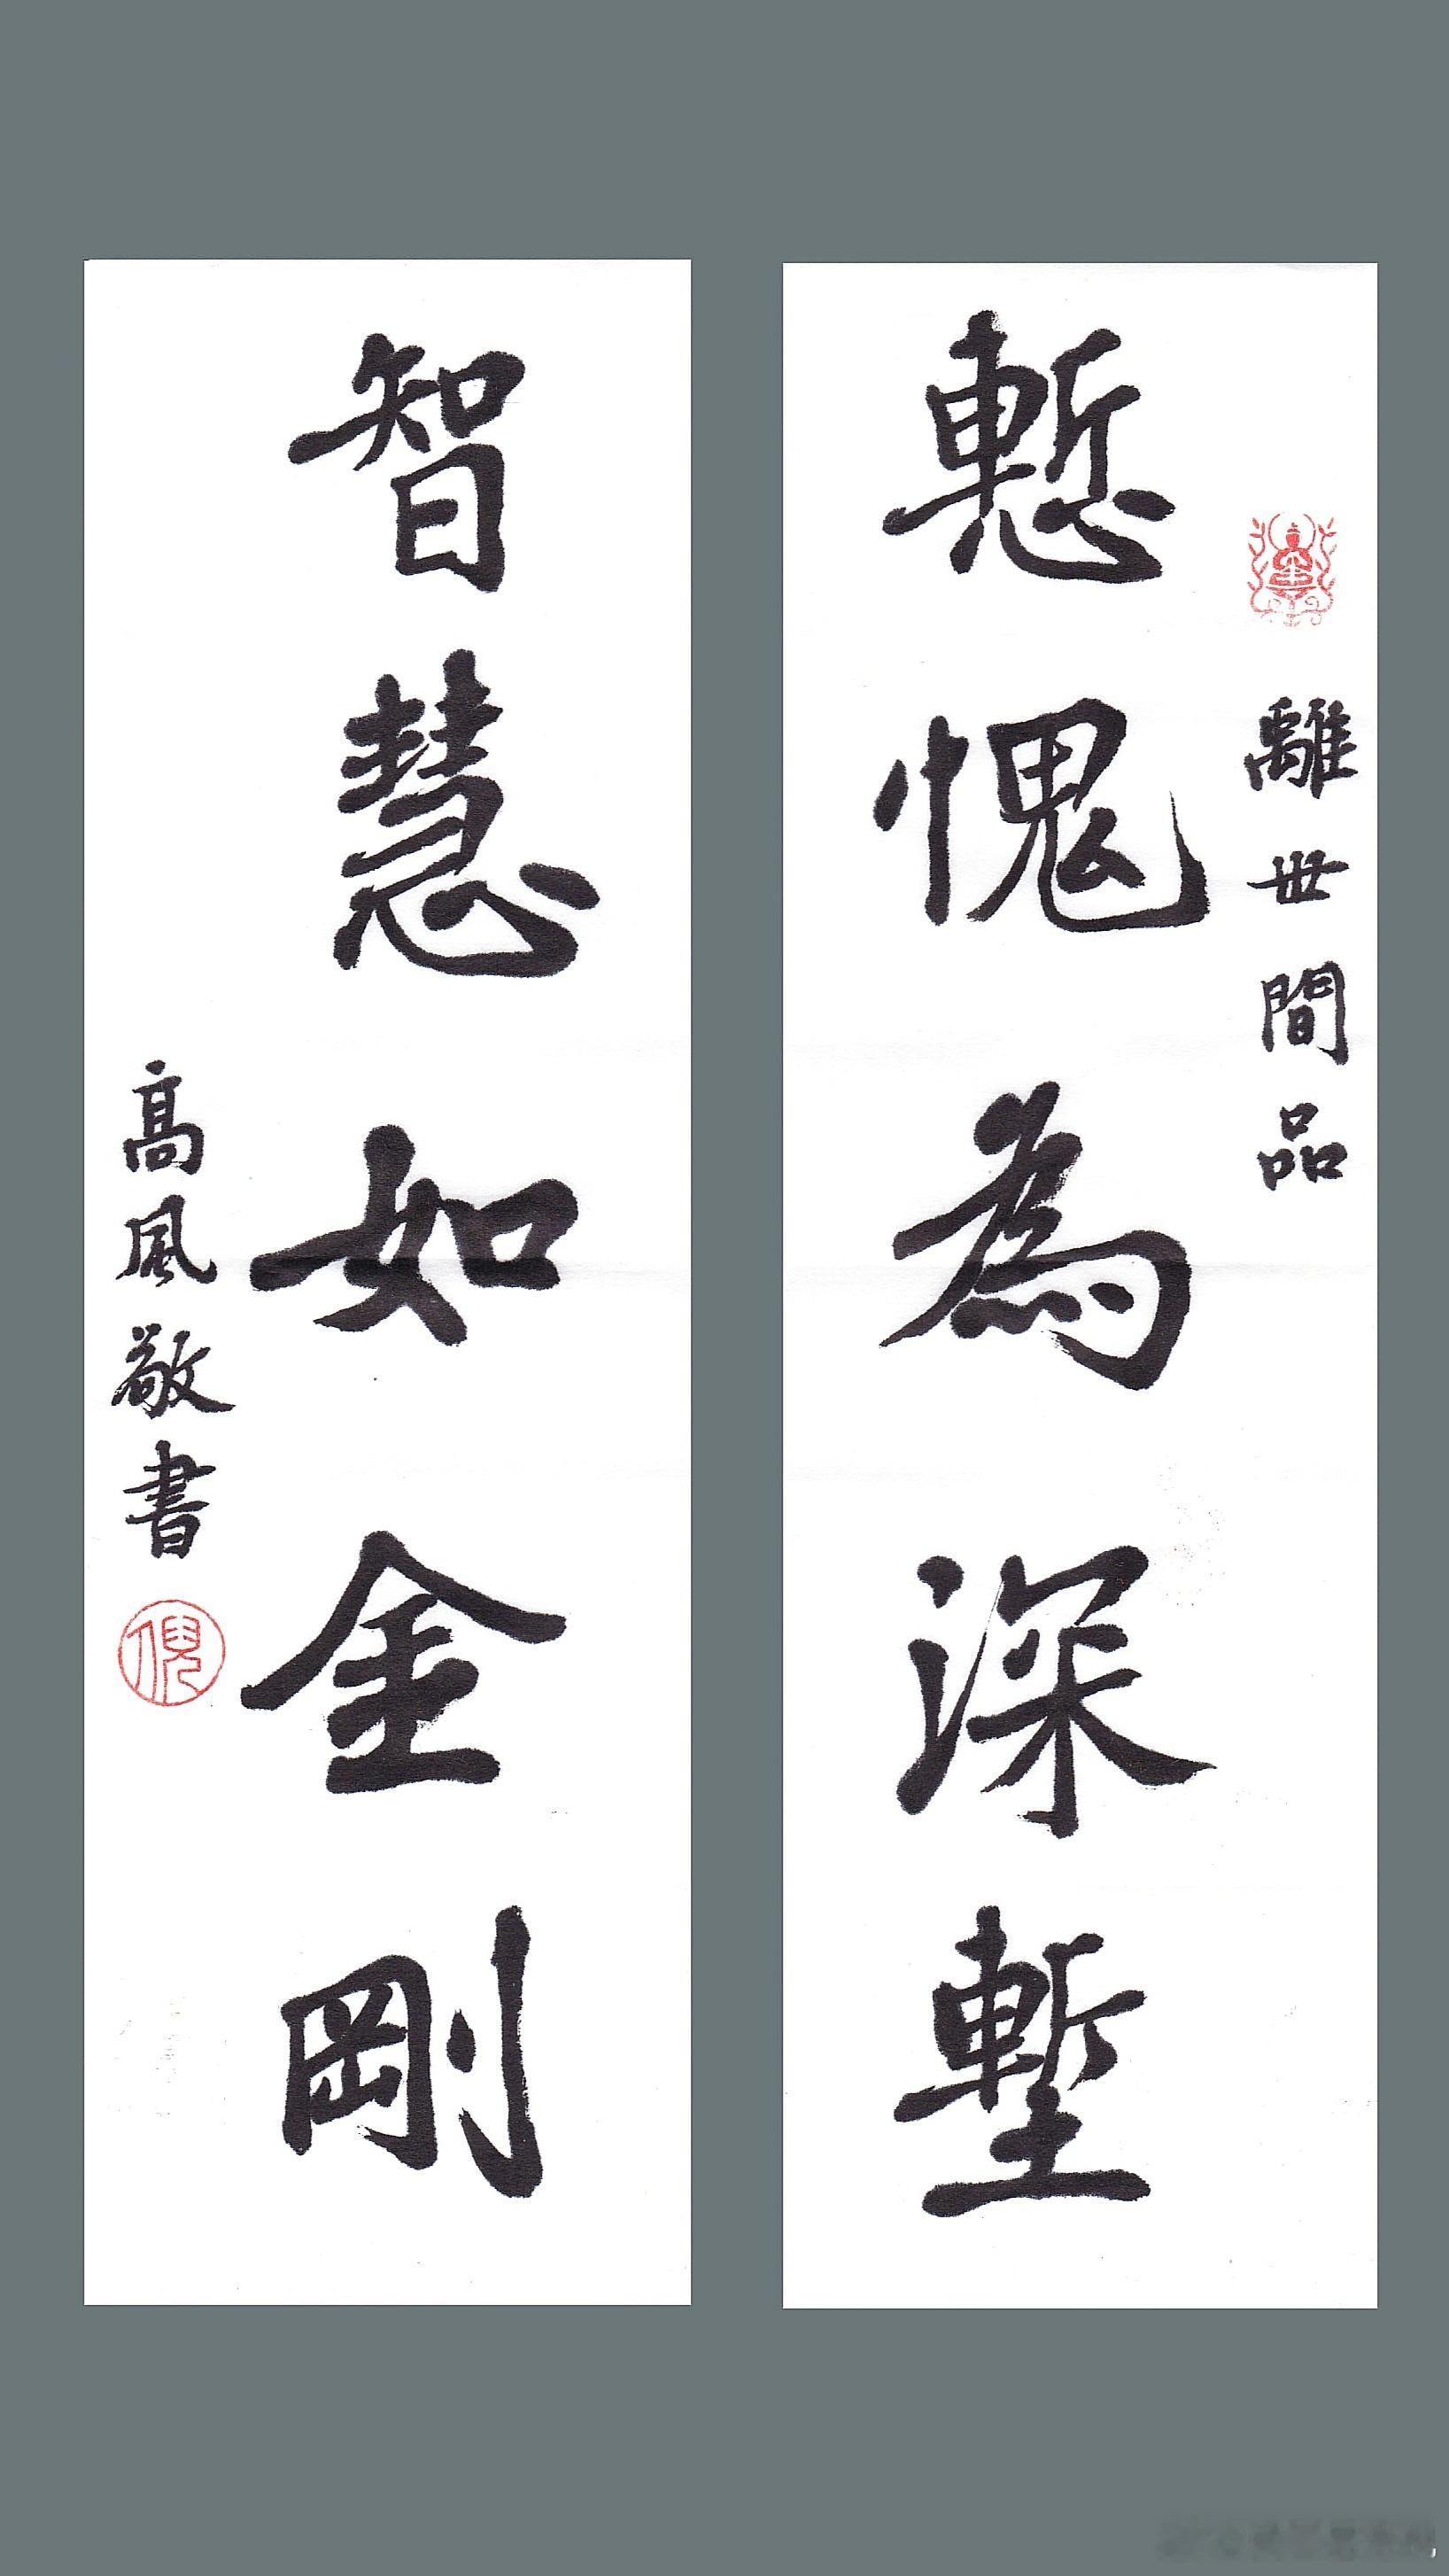 離世間品
慙愧為深塹
智慧如金剛
高風敬書
倪